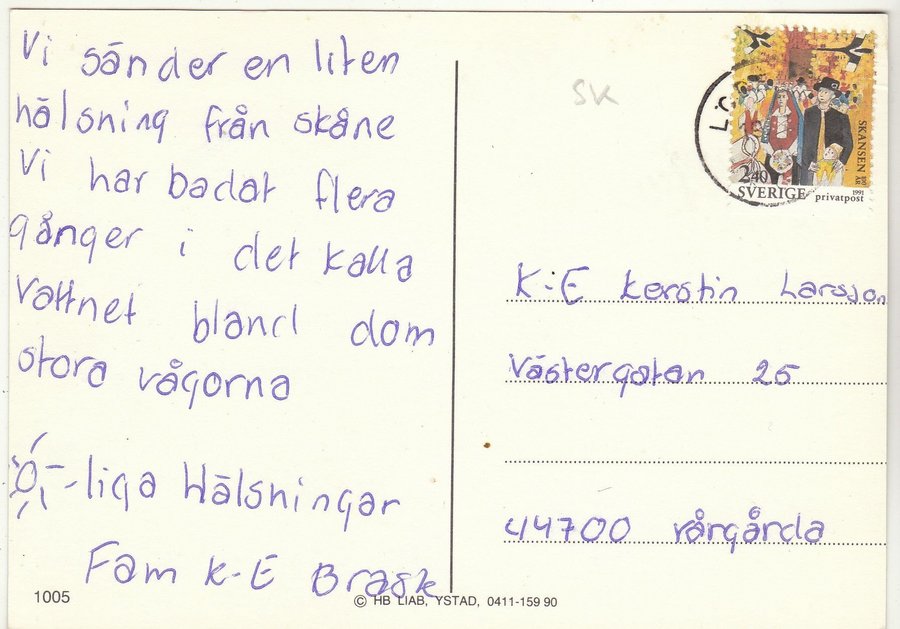 Vi sänder en liten
hälsning från skåne
Vi har badat flera
gånger i det kalla
vattnet bland dom
stora vågorna
-liga Hälsningar
Fam K-E Brask
1005
SK
SKANSEN 100 ÅR
2.40
SVERIGE
1991
privatpost
K-E Kerstin Larsson
Västergatan 25
44700 vårgårda
© HB LIAB, YSTAD, 0411-159 90